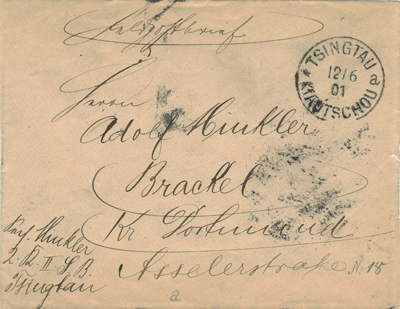 Feldpostbrief
TSINGTAU a
12/6
01
KIAUTSCHOU
Herrn
Adolf Winkler
Brackel
Kr Dortmund
Asselerstraße N. 18
Karl Winkler
2. B. II. S. B.
Tsingtau
a